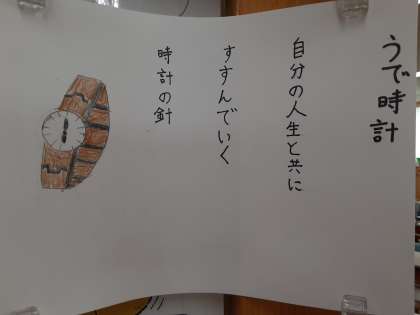 うで時計
自分の人生と共に
すすんでいく
時計の針